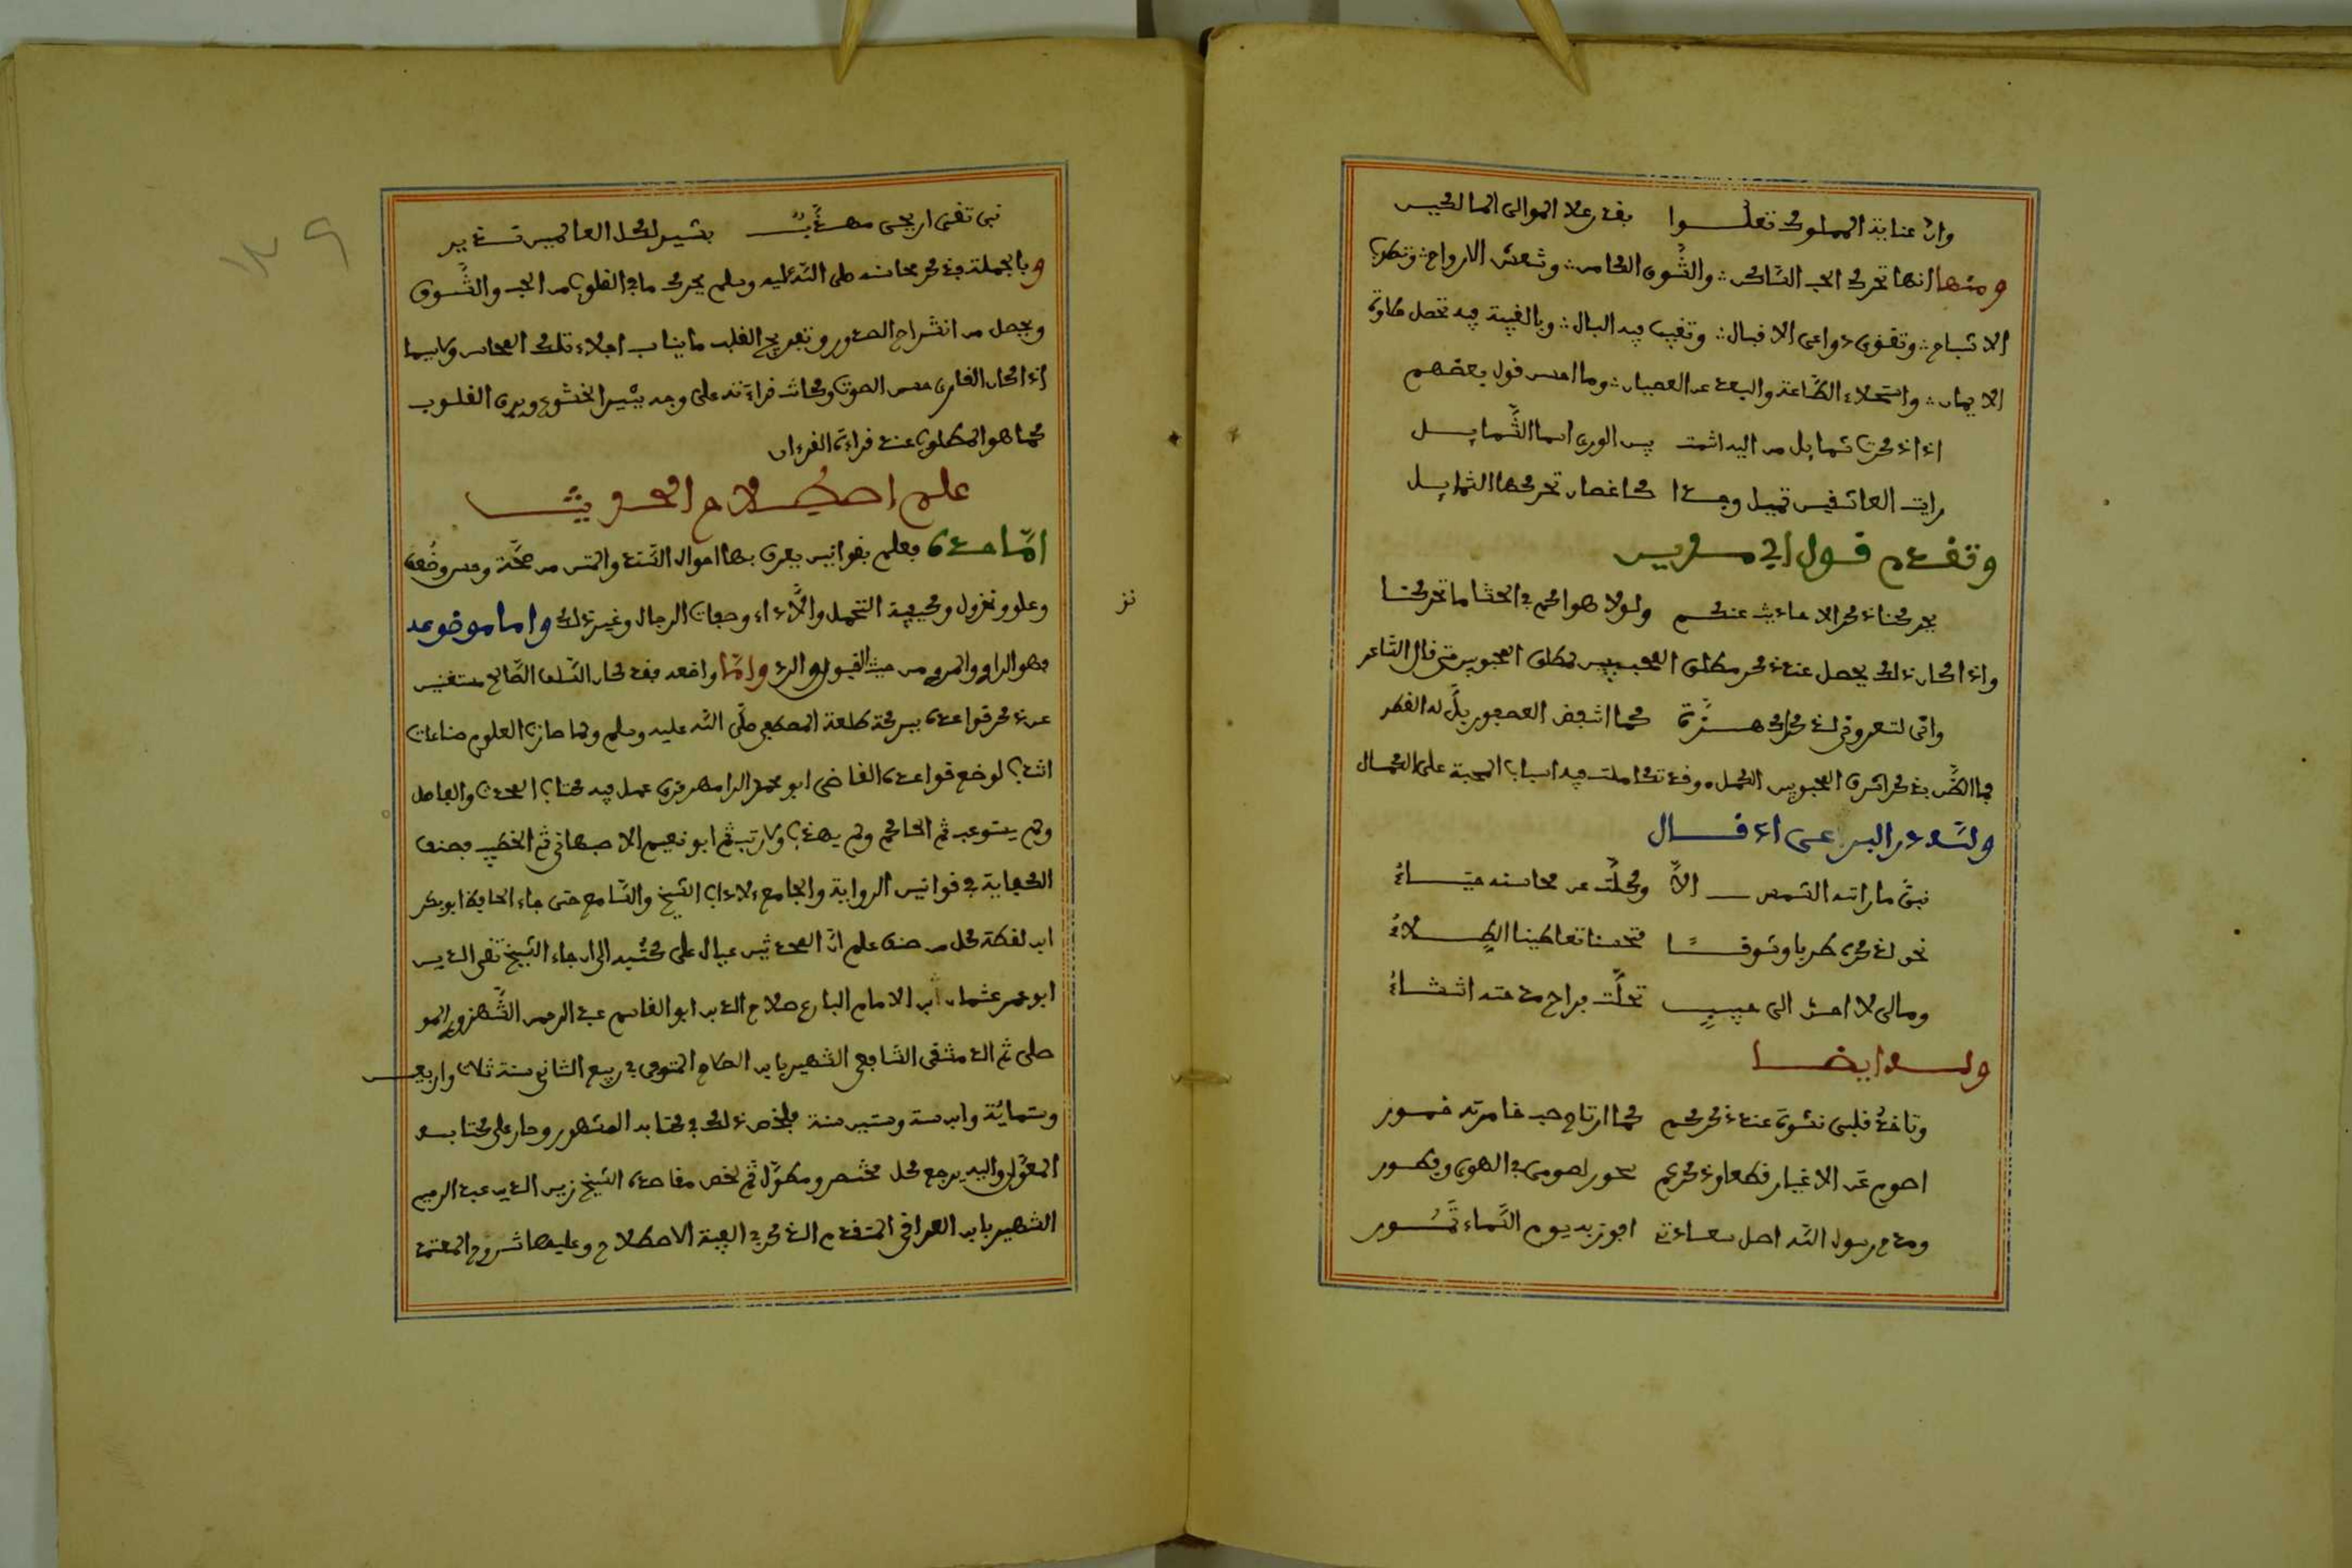 وان عناية المملوك تعلوا بقدر علا الموالى المالكين
ومنها انها تحرك الحب الساكن والشوق الكامن وتنعش الارواح وتطرب
الاشباح وتقوى دواعى الاقبال وتغيب فيه البال وبالغيبة فيه تحصل حلاوة
الايمان واستحلاء الطاعة والبعد عن العصيان وما احسن قول بعضهم
اذا ذكرت شمايل من اليه انتمت بين الورى اسما الشمايل
رايت العاشقين تميل وجدا كاغصان تحركها الشمايل
وتقدم قول ابي مدين
يحركنا ذكر الاحاديث عنكم ولولا هواكم في الحشا ما تحركنا
واذا كان ذلك يحصل عند ذكر مطلق المحبين لمطلق المحبوبين حتى قال الشاعر
وانى لتعرونى لذكراك هزة كما انتفض العصفور بلله القطر
فما الظن بذكر اشرف المحبوبين الكمل وقد تكاملت فيه اسباب المحبة على الكمال
ولله در البرعى اذ قال
نبى ما راته الشمس الا وكلت عن محاسنه حياء
نحن لذكره طربا وشوقا فتحسنا تعاطينا الطلاء
ومالى لا احن الى حبيب تحلت براح مدحته انتشاء
وله ايضا
وتاخذ قلبى نشوة عند ذكركم كما ارتاح صب خامرته خمور
اصوم عن الاغيار قطعا وذكركم سحور لصومى في الهوى وفطور
ومدح رسول الله اصل سعادتى افوز به يوم السماء تمور
نبى تقى اريحى مهذب بشير لكل العالمين نذير
وبالجملة فذكر محاسنه صلى الله عليه وسلم يحرك ما في القلوب من الحب والشوق
ويحصل من انشراح الصدور وتفريح القلب ما يناسب اجلاء تلك المحاسن ولاسيما
اذا كان القارى حسن الصوت وكانت قراءته على وجه يثير الخشوع ويرق القلوب
كما هو المطلوب عند قراءة القرءان
علم اصطلاح الحديث
اما حده فعلم بقوانين يعرف بها احوال السند والمتن من صحة وحسن وضعف
وعلو ونزول وكيفية التحمل والاداء وصفات الرجال وغير ذلك واما موضوعه
فهو الراوى والمروى من حيث القبول والرد واما واضعه فقد كان السلف الصالح مستغنين
عن ذكر قواعده ببركة طلعة المصطفى صلى الله عليه وسلم ولما صارت العلوم صناعات
انتدب لوضع قواعده القاضى ابو محمد الرامهرمزى عمل فيه كتاب المحدث والفاصل
ولم يستوعب ثم الحاكم ولم يهذب ولا رتب ثم ابو نعيم الاصبهانى ثم الخطيب فصنف
الكفاية في قوانين الرواية والجامع لاداب الشيخ والسامع حتى جاء الحافظ ابو بكر
ابن نقطة كل من صنف علم ان المحدثين عيال على كتبه الى ان جاء الشيخ تقى الدين
ابو عمر عثمان بن الامام البارع صلاح الدين ابو القاسم عبد الرحمن الشهرزورى المو
صلى ثم الدمشقى الشافعى الشهير بابن الصلاح المتوفى في ربيع الثانى سنة ثلاث واربعين
وستمائة وابن ستة وستين سنة فلخص ذلك في كتابه المشهور وصار على كتابه
المعول واليه يرجع كل مختصر ومطول ثم لخص مقاصده الشيخ زين الدين عبد الرحيم
الشهير بابن العراقى المتقدم الذكر في الفية الاصطلاح وعليها شروح المعتمد
نز
١٢٩